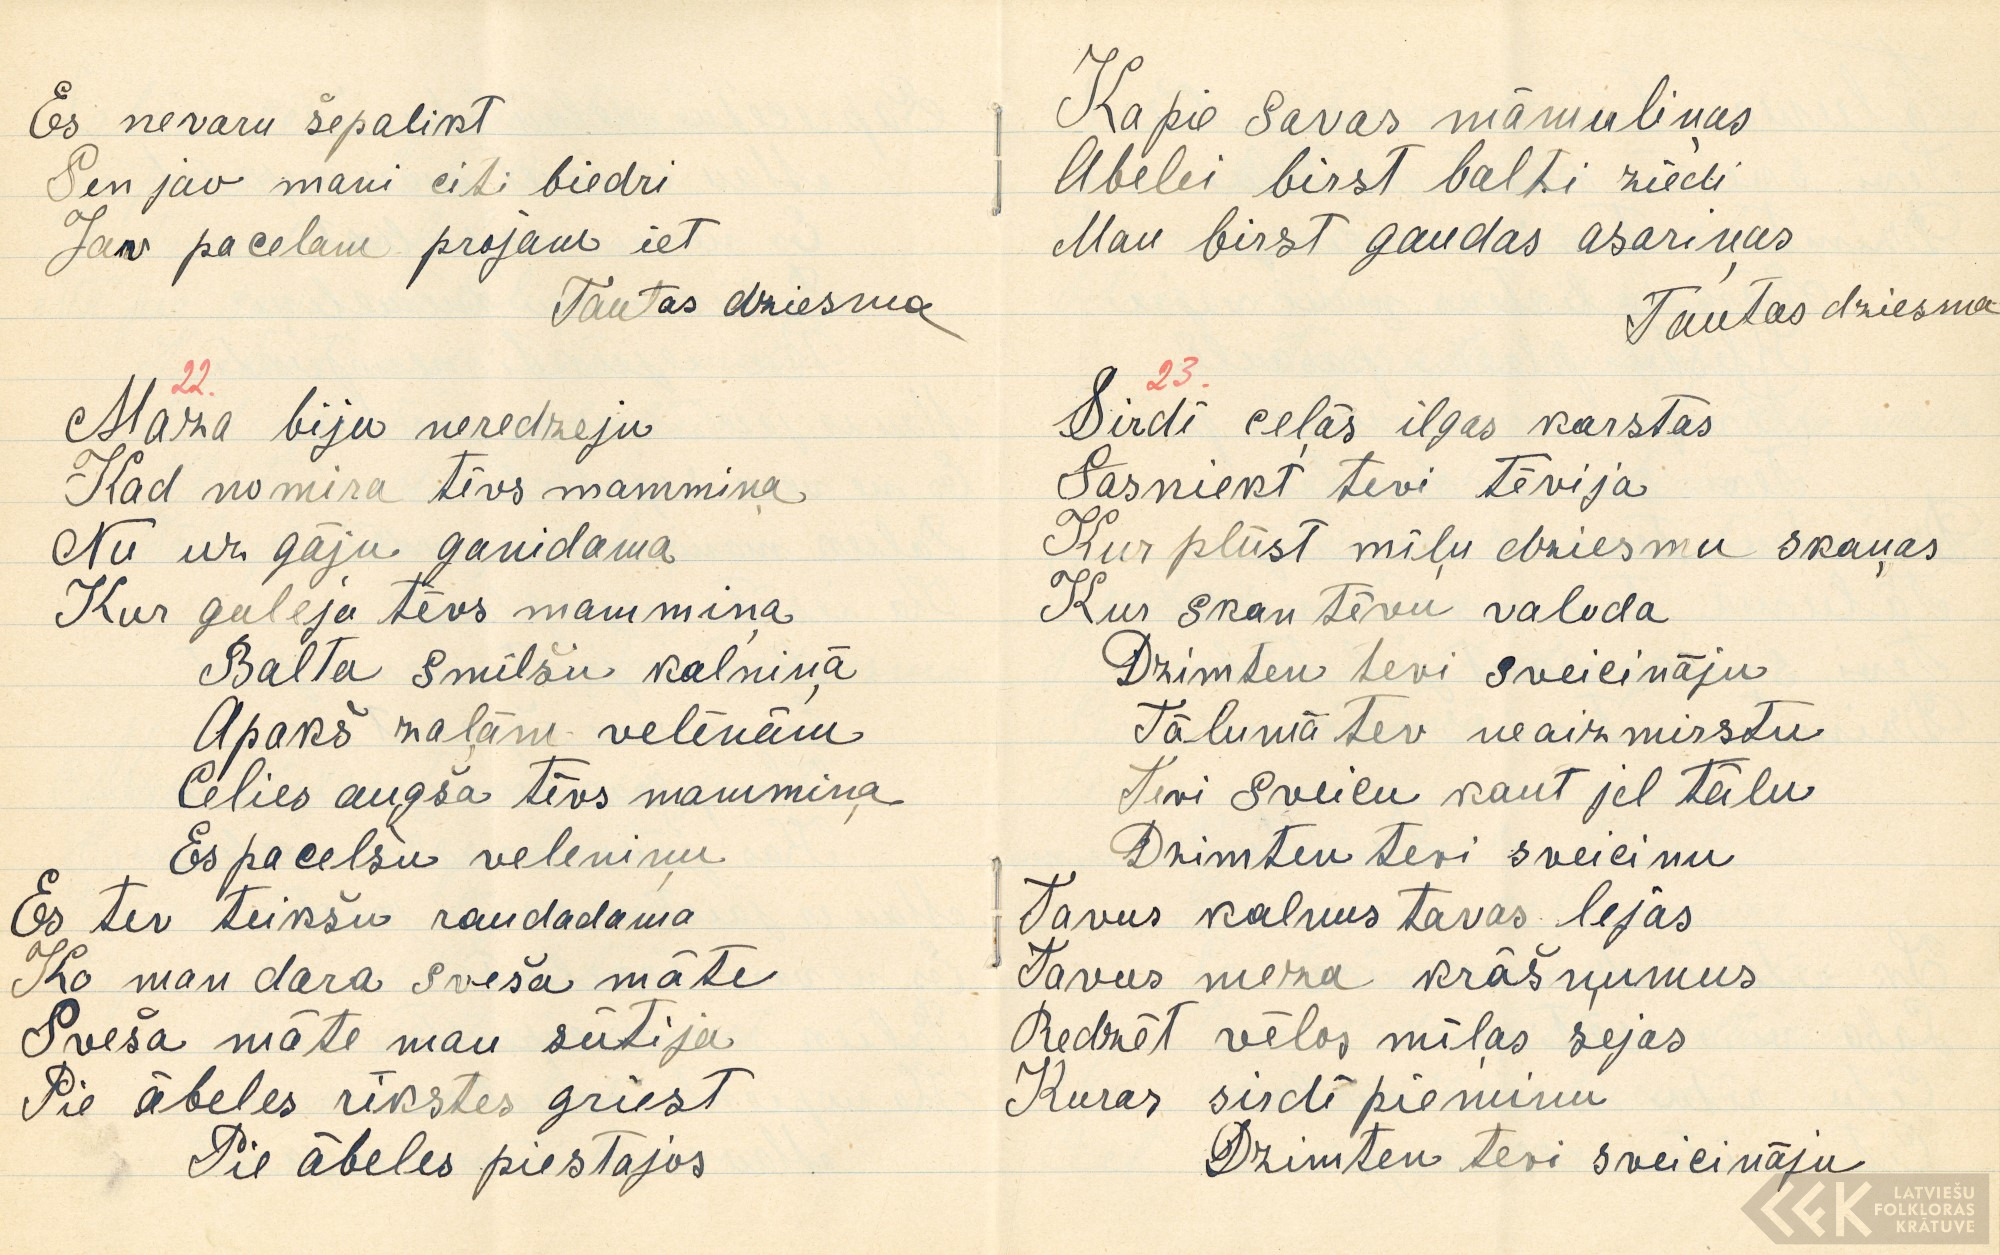 Es nevaru šepalikt
Sen jav mani citi biedri
Jav pacelam projam iet
Tautas dziesma
22.
Maza biju neredzeju
Kad nomira tēvs mammiņa
Nū uz gāju ganidama
Kur guleja tēvs mammiņa
Balta smilšu kalniņā
Apakš zaļām velēnām
Celies augša tēvs mammiņa
Es pacelšu veleniņu
Es tev teikšu raudadama
Ko man dara sveša māte
Sveša māte man sūtija
Pie ābeles rīkstes griest
Pie ābeles piestajos
Ka pie savas māmuliņas
Abelei birst balti ziedi
Man birst gaudas asariņas
Tautas dziesma
23.
Sirdī ceļās ilgas karstas
Sasniekt tevi tēvija
Kur plūst mīļu dziesmu skaņas
Kur skan tēvu valoda
Dzimten tevi sveicināju
Tālumā tev neaizmirstu
Tevi sveicu kaut jel tālu
Dzimten tevi sveicinu
Tavus kalnus tavas lejas
Tavus meza krāšņumus
Redzēt vēlos mīļas sejas
Kuras sirdī pieminu
Dzimten tevi sveicināju
LATVIEŠU
FOLKLORAS
KRĀTUVE